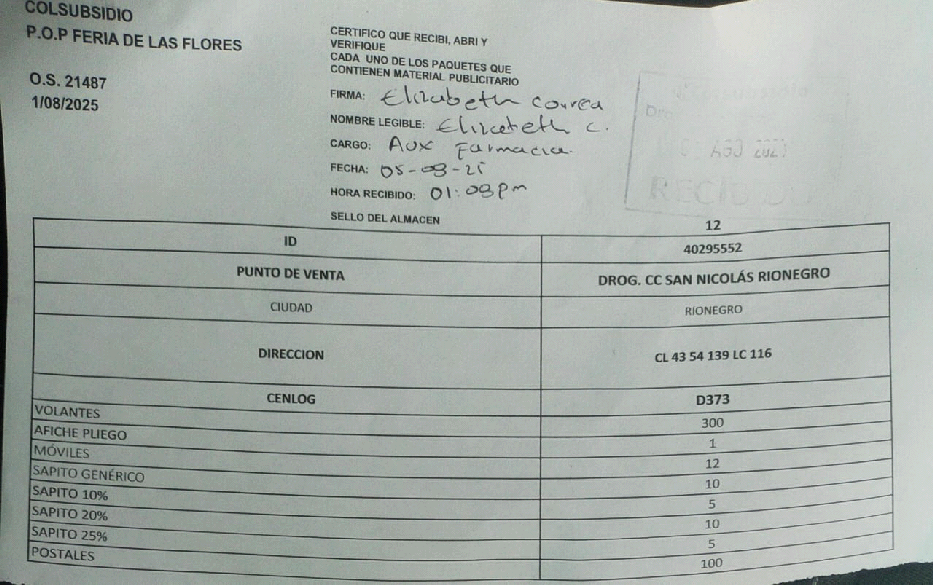 COLSUBSIDIO
P.O.P FERIA DE LAS FLORES
O.S. 21487
1/08/2025
CERTIFICO QUE RECIBI, ABRI Y
VERIFIQUE
CADA UNO DE LOS PAQUETES QUE
CONTIENEN MATERIAL PUBLICITARIO
FIRMA: Elizabeth Correa
NOMBRE LEGIBLE: Elizabeth C.
CARGO: Aux Farmacia
FECHA: 05-08-25
HORA RECIBIDO: 01:08pm
SELLO DEL ALMACEN
AGO
RECIBIDO
12
ID 40295552
PUNTO DE VENTA DROG. CC SAN NICOLÁS RIONEGRO
CIUDAD RIONEGRO
DIRECCION CL 43 54 139 LC 116
CENLOG D373
VOLANTES 300
AFICHE PLIEGO 1
MÓVILES 12
SAPITO GENÉRICO 10
SAPITO 10% 5
SAPITO 20% 10
SAPITO 25% 5
POSTALES 100